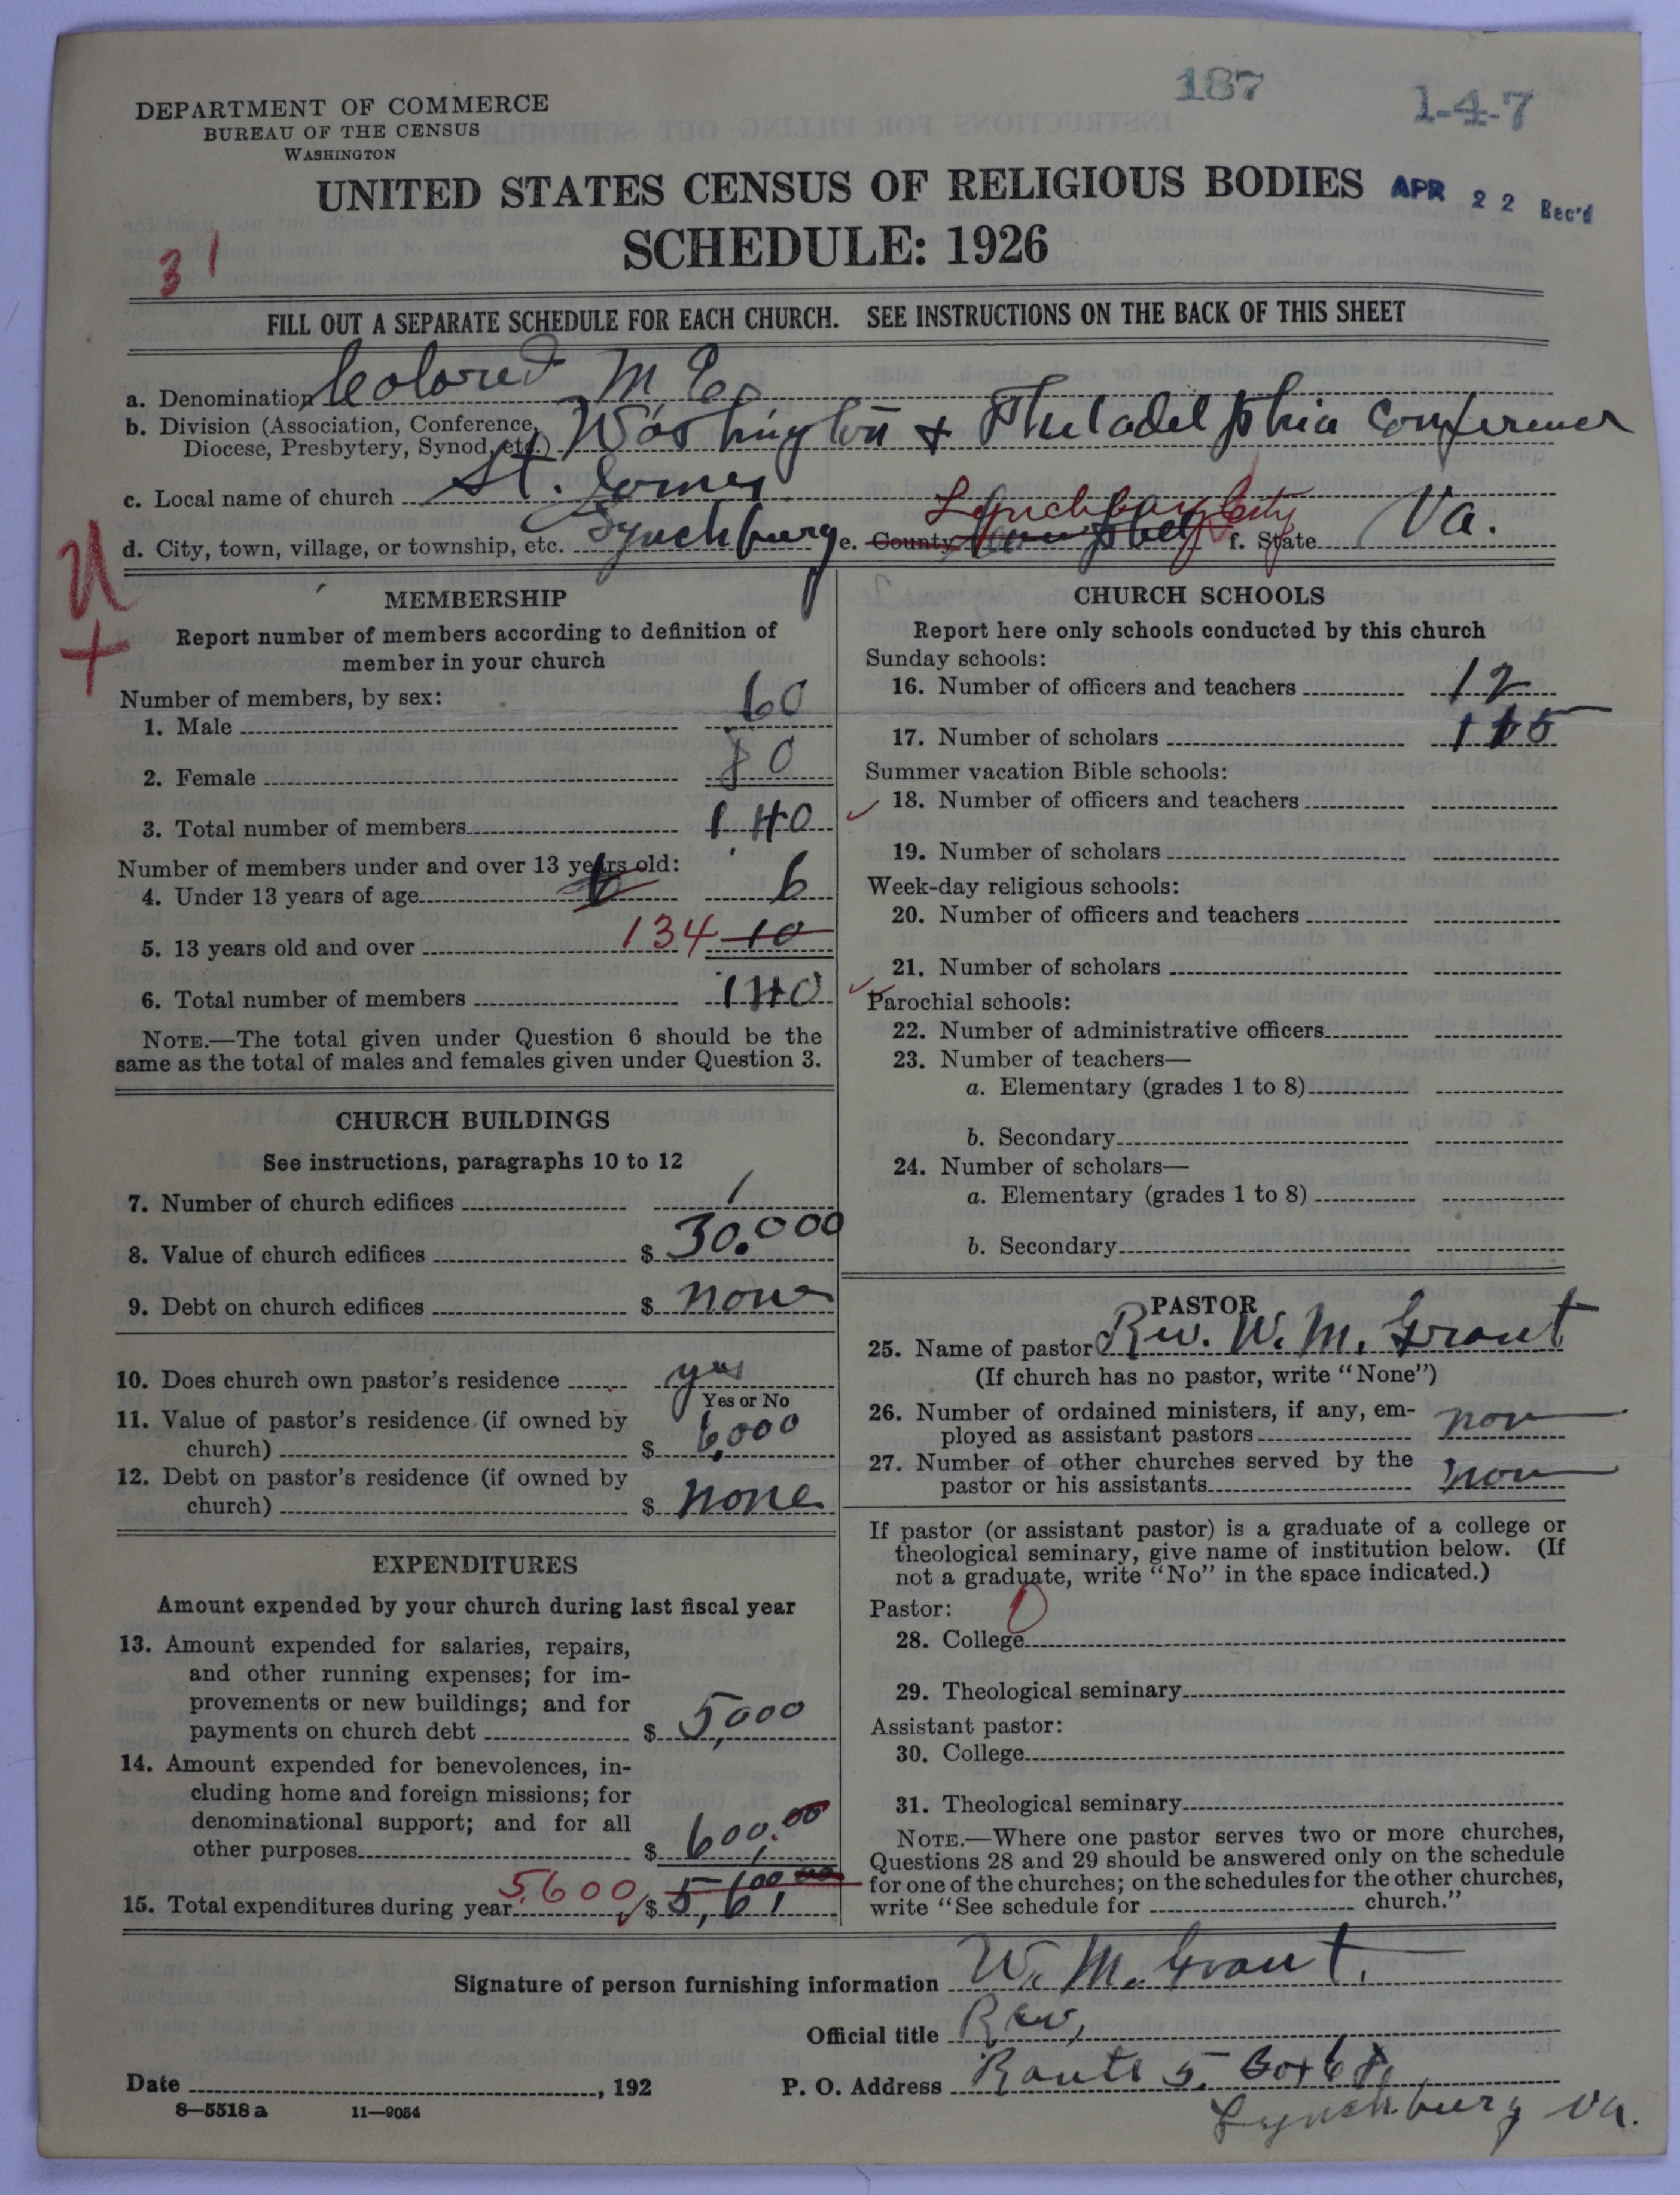 187
1-4-7
DEPARTMENT OF COMMERCE
BUREAU OF THE CENSUS
WASHINGTON
UNITED STATES CENSUS OF RELIGIOUS BODIES
APR 22 Rec'd
SCHEDULE: 1926
31
FILL OUT A SEPARATE SCHEDULE FOR EACH CHURCH. SEE INSTRUCTIONS ON THE BACK OF THIS SHEET
a. Denomination Colored M E
b. Division (Association, Conference,
Diocese, Presbytery, Synod, etc.) Washington + Philadelphia Conference
c. Local name of church St. James
Lynchburg City
d. City, town, village, or township, etc. Lynchburg e. County Campbell f. State Va.
U
+
MEMBERSHIP
Report number of members according to definition of
member in your church
Number of members, by sex:
1. Male 60
2. Female 80
3. Total number of members 140
Number of members under and over 13 years old:
4. Under 13 years of age 6 6
5. 13 years old and over 134 10
6. Total number of members 140
NOTE.—The total given under Question 6 should be the
same as the total of males and females given under Question 3.
CHURCH BUILDINGS
See instructions, paragraphs 10 to 12
7. Number of church edifices 1
8. Value of church edifices $ 30.000
9. Debt on church edifices $ none
10. Does church own pastor's residence yes
Yes or No
11. Value of pastor's residence (if owned by
church) $ 6,000
12. Debt on pastor's residence (if owned by
church) $ none
EXPENDITURES
Amount expended by your church during last fiscal year
13. Amount expended for salaries, repairs,
and other running expenses; for im-
provements or new buildings; and for
payments on church debt $ 5,000
14. Amount expended for benevolences, in-
cluding home and foreign missions; for
denominational support; and for all
other purposes $ 600.00
15. Total expenditures during year 5600 $
CHURCH SCHOOLS
Report here only schools conducted by this church
Sunday schools:
16. Number of officers and teachers 12
17. Number of scholars 115
Summer vacation Bible schools:
18. Number of officers and teachers
19. Number of scholars
Week-day religious schools:
20. Number of officers and teachers
21. Number of scholars
Parochial schools:
22. Number of administrative officers
23. Number of teachers—
a. Elementary (grades 1 to 8)
b. Secondary
24. Number of scholars—
a. Elementary (grades 1 to 8)
b. Secondary
PASTOR
25. Name of pastor Rev. W. M. Grant
(If church has no pastor, write "None")
26. Number of ordained ministers, if any, em-
ployed as assistant pastors non
27. Number of other churches served by the
pastor or his assistants non
If pastor (or assistant pastor) is a graduate of a college or
theological seminary, give name of institution below. (If
not a graduate, write "No" in the space indicated.)
Pastor: 0
28. College
29. Theological seminary
Assistant pastor:
30. College
31. Theological seminary
NOTE.—Where one pastor serves two or more churches,
Questions 28 and 29 should be answered only on the schedule
for one of the churches; on the schedules for the other churches,
write "See schedule for church."
Signature of person furnishing information W. M. Grant.
Official title Rev,
Date , 192
P. O. Address Route 5, Box
Lynchburg Va.
8-5518a 11-9054